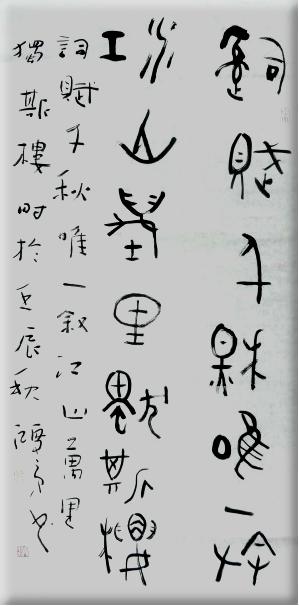 詞賦千秋唯一叙
江山萬里獨斯樓
詞賦千秋唯一叙江山萬里
獨斯樓時於壬辰秋